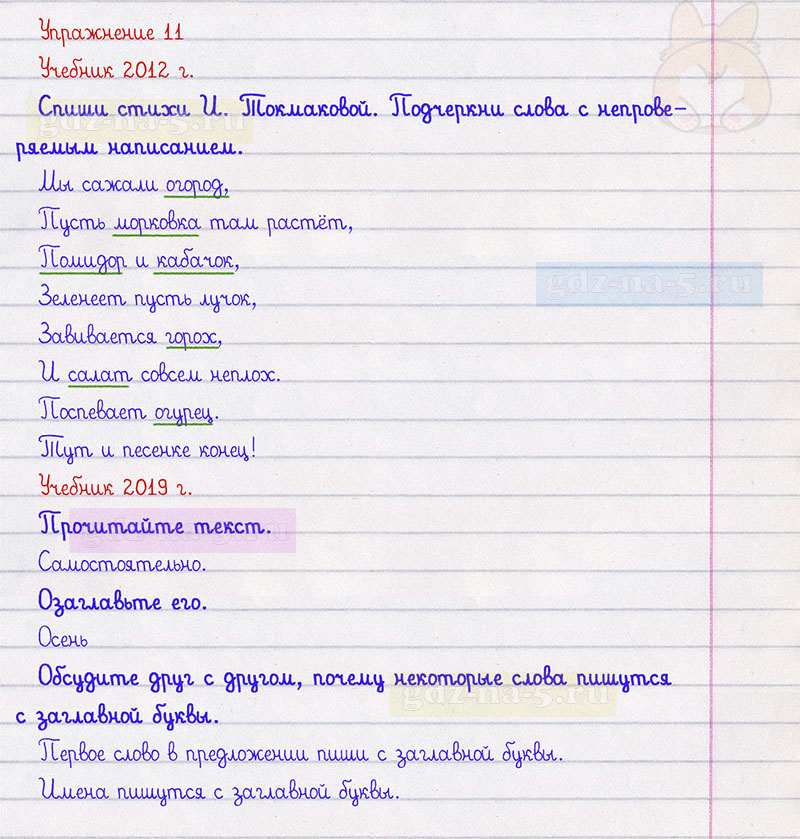 Упражнение 11
Учебник 2012 г.
Спиши стихи И. Токмаковой. Подчеркни слова с непрове-
ряемым написанием.
gdz-na-5.ru
Мы сажали огород,
Пусть морковка там растёт,
Помидор и кабачок,
gdz-na-5.ru
Зеленеет пусть лучок,
Завивается горох,
И салат совсем неплох.
Поспевает огурец.
Тут и песенке конец!
Учебник 2019 г.
Прочитайте текст.
gdz-na-5.ru
Самостоятельно.
Озаглавьте его.
Осень
Обсудите друг с другом, почему некоторые слова пишутся
gdz-na-5.ru
с заглавной буквы.
Первое слово в предложении пиши с заглавной буквы.
Имена пишутся с заглавной буквы.